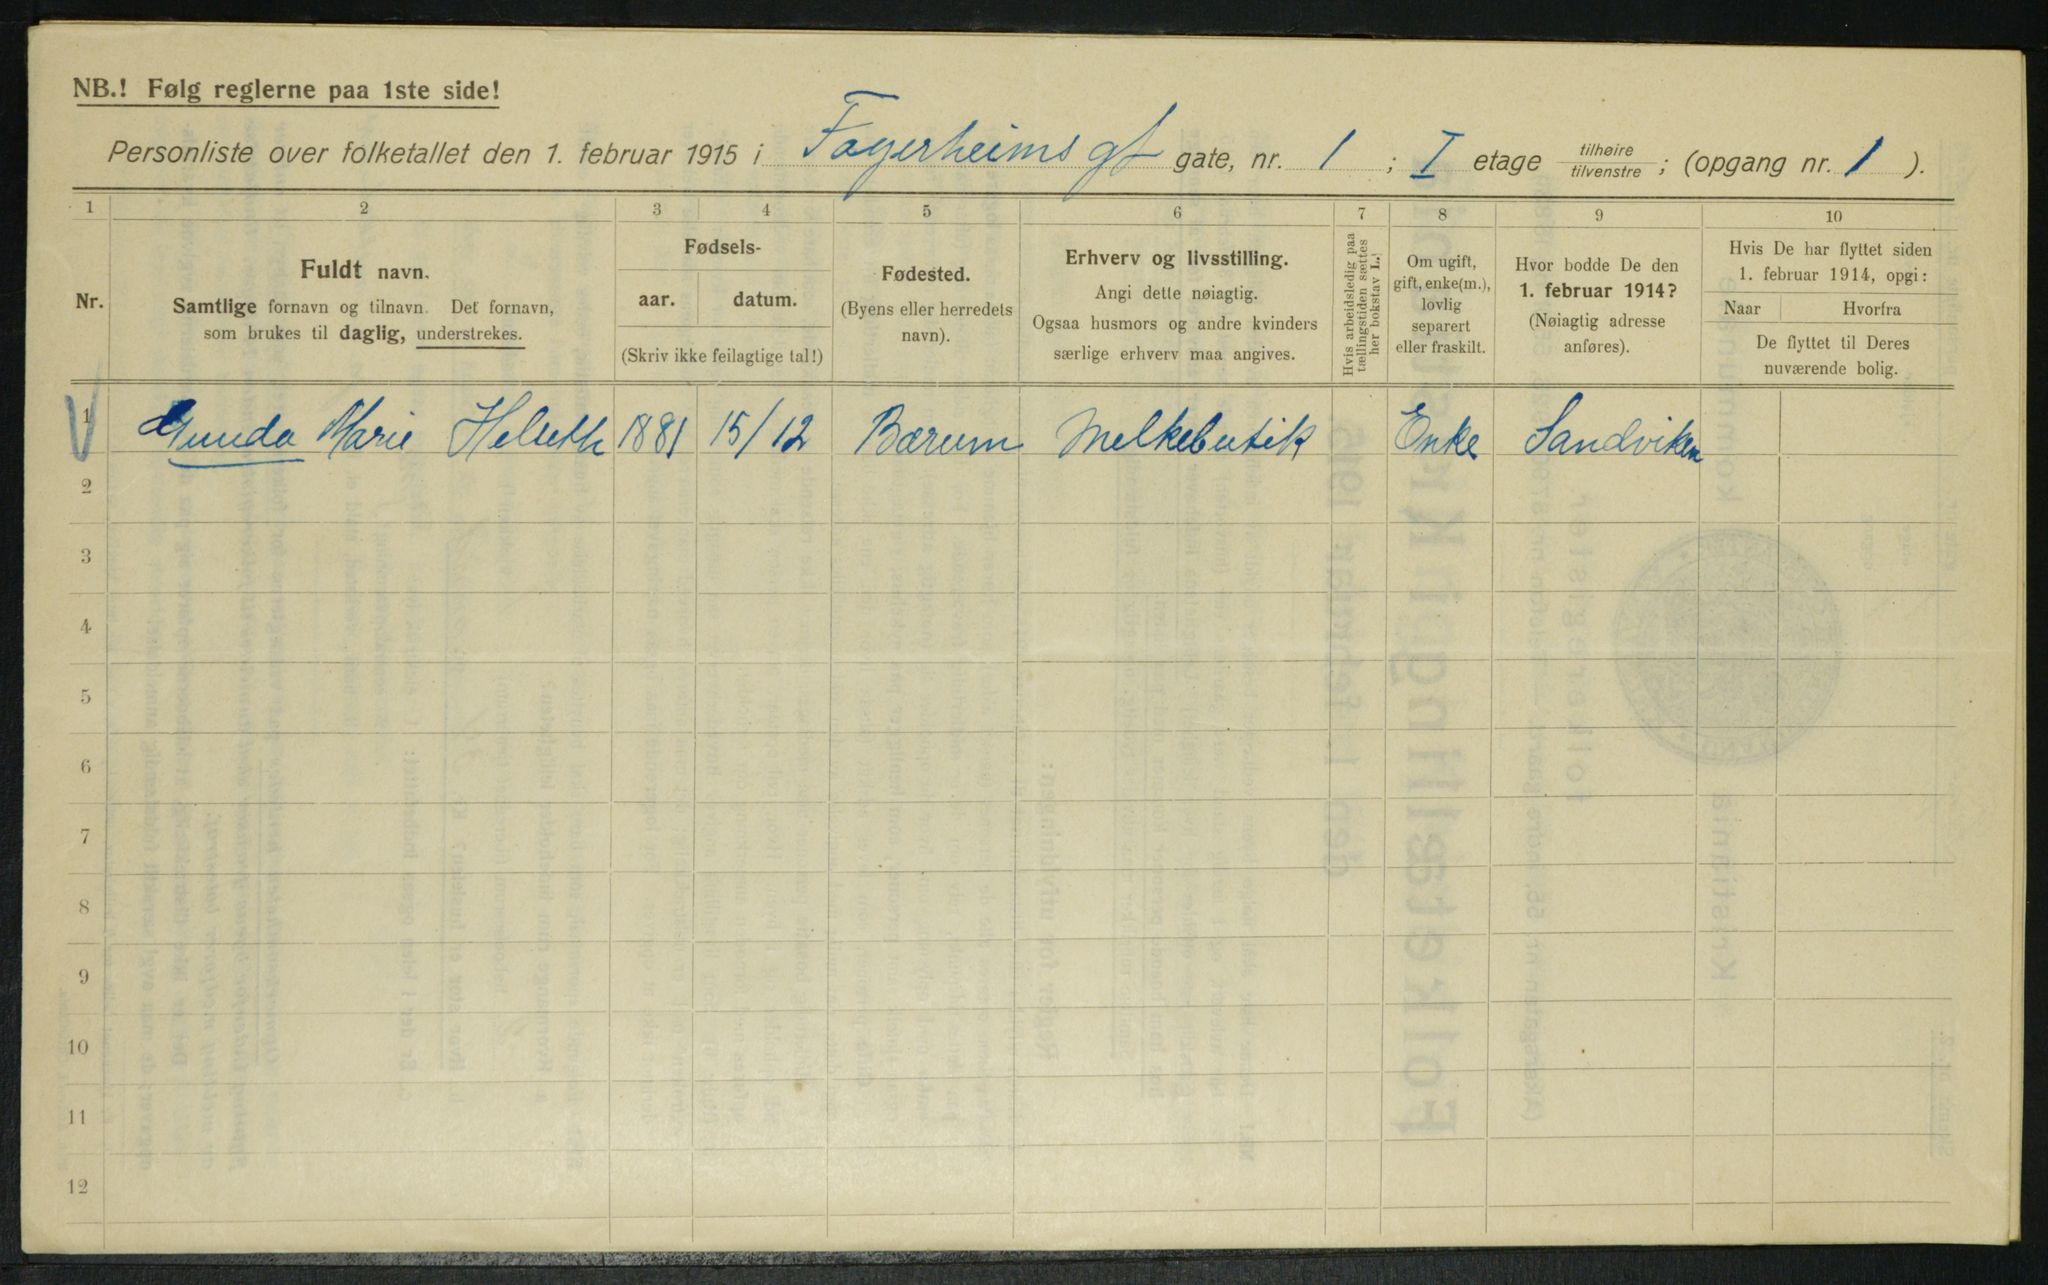 NB.! Følg reglerne paa 1ste side!
Personliste over folketallet den 1. februar 1915 i Fagerheims gt gate, nr. 1 ; I etage tilhøire/tilvenstre ; (opgang nr. 1 ).
1 2 3 4 5 6 7 8 9 10
Nr.
Fuldt navn.
Samtlige fornavn og tilnavn. Det fornavn,
som brukes til daglig, understrekes.
Fødsels-
aar. datum.
(Skriv ikke feilagtige tal!)
Fødested.
(Byens eller herredets
navn).
Erhverv og livsstilling.
Angi dette nøiagtig.
Ogsaa husmors og andre kvinders
særlige erhverv maa angives.
Hvis arbeidsledig paa
tællingstiden sættes
her bokstav L.!
Om ugift,
gift, enke(m.),
lovlig
separert
eller fraskilt.
Hvor bodde De den
1. februar 1914?
(Nøiagtig adresse
anføres).
Hvis De har flyttet siden
1. februar 1914, opgi:
Naar Hvorfra
De flyttet til Deres
nuværende bolig.
1 Gunda Marie Helseth 1881 15/12 Bærum Melkebutik Enke Sandviken
2
3
4
5
6
7
8
9
10
11
12